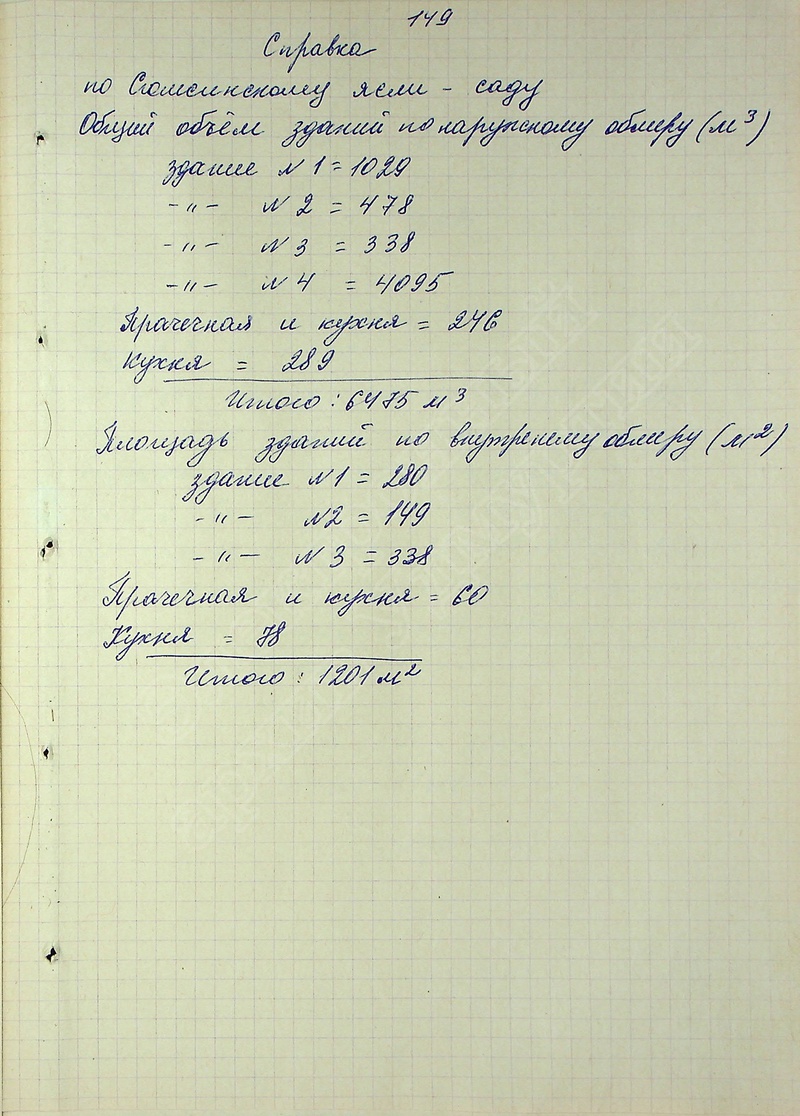 149
Справка
по Сюмсинскому ясли - саду
Общий объём зданий по наружному обмеру (м³)
здание N 1 = 1029
-"- N 2 = 478
-"- N 3 = 338
-"- N 4 = 4095
Прачечная и кухня = 246
Кухня = 289
Итого : 6475 м³
Площадь зданий по внутренему обмеру (м²)
здание N1 = 280
-"- N2 = 149
-"- N 3 = 338
Прачечная и кухня = 60
Кухня = 78
Итого : 1201 м²